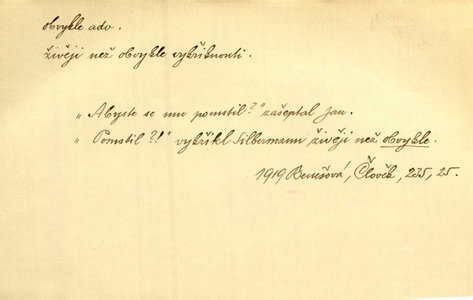 obvykle adv.
živěji než obvykle vykřiknouti.
„Abyste se mu pomstil?" zašeptal Jan.
„Pomstil?!" vykřikl Silbermann živěji než obvykle.
1919 Benešová, Člověk, 235, 25.